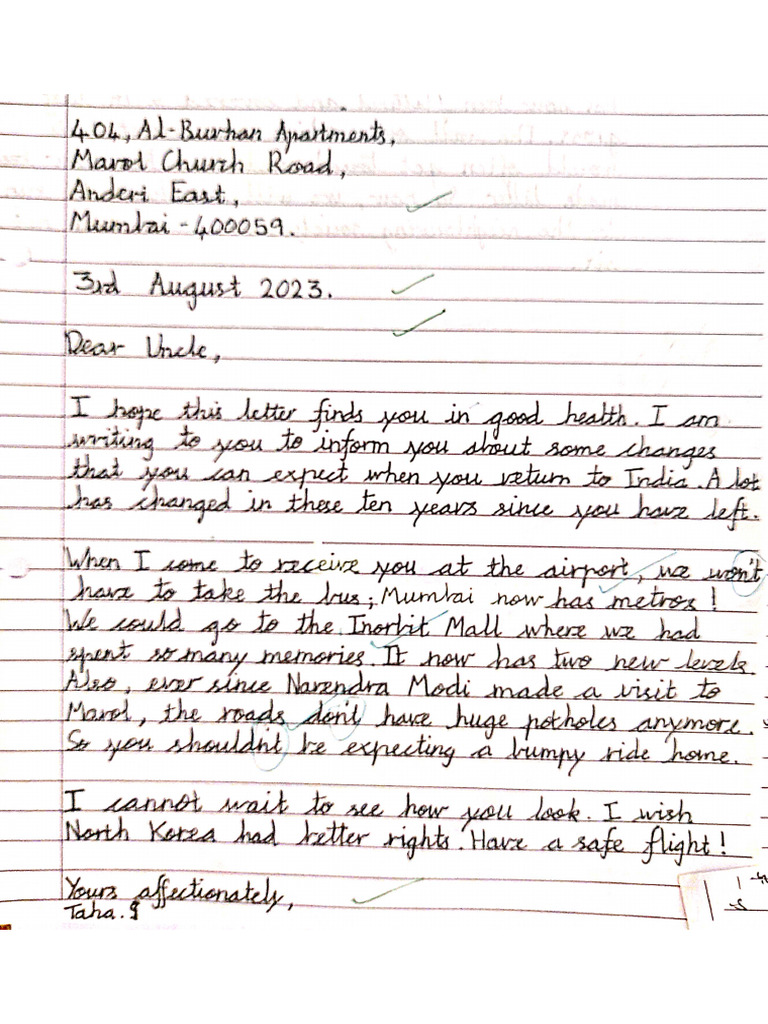 404, Al-Burhan Apartments,
Marol Church Road,
Anderi East,
Mumbai - 400059.
3rd August 2023.
Dear Uncle,
I hope this letter finds you in good health. I am
writing to you to inform you about some changes
that you can expect when you return to India. A lot
has changed in these ten years since you have left.
When I come to receive you at the airport, we won't
have to take the bus; Mumbai now has metros!
We could go to the Inorbit Mall where we had
spent so many memories. It now has two new levels.
Also, ever since Narendra Modi made a visit to
Marol, the roads don't have huge potholes anymore.
So you shouldn't be expecting a bumpy ride home.
I cannot wait to see how you look. I wish
North Korea had better rights. Have a safe flight!
Yours affectionately,
Taha.